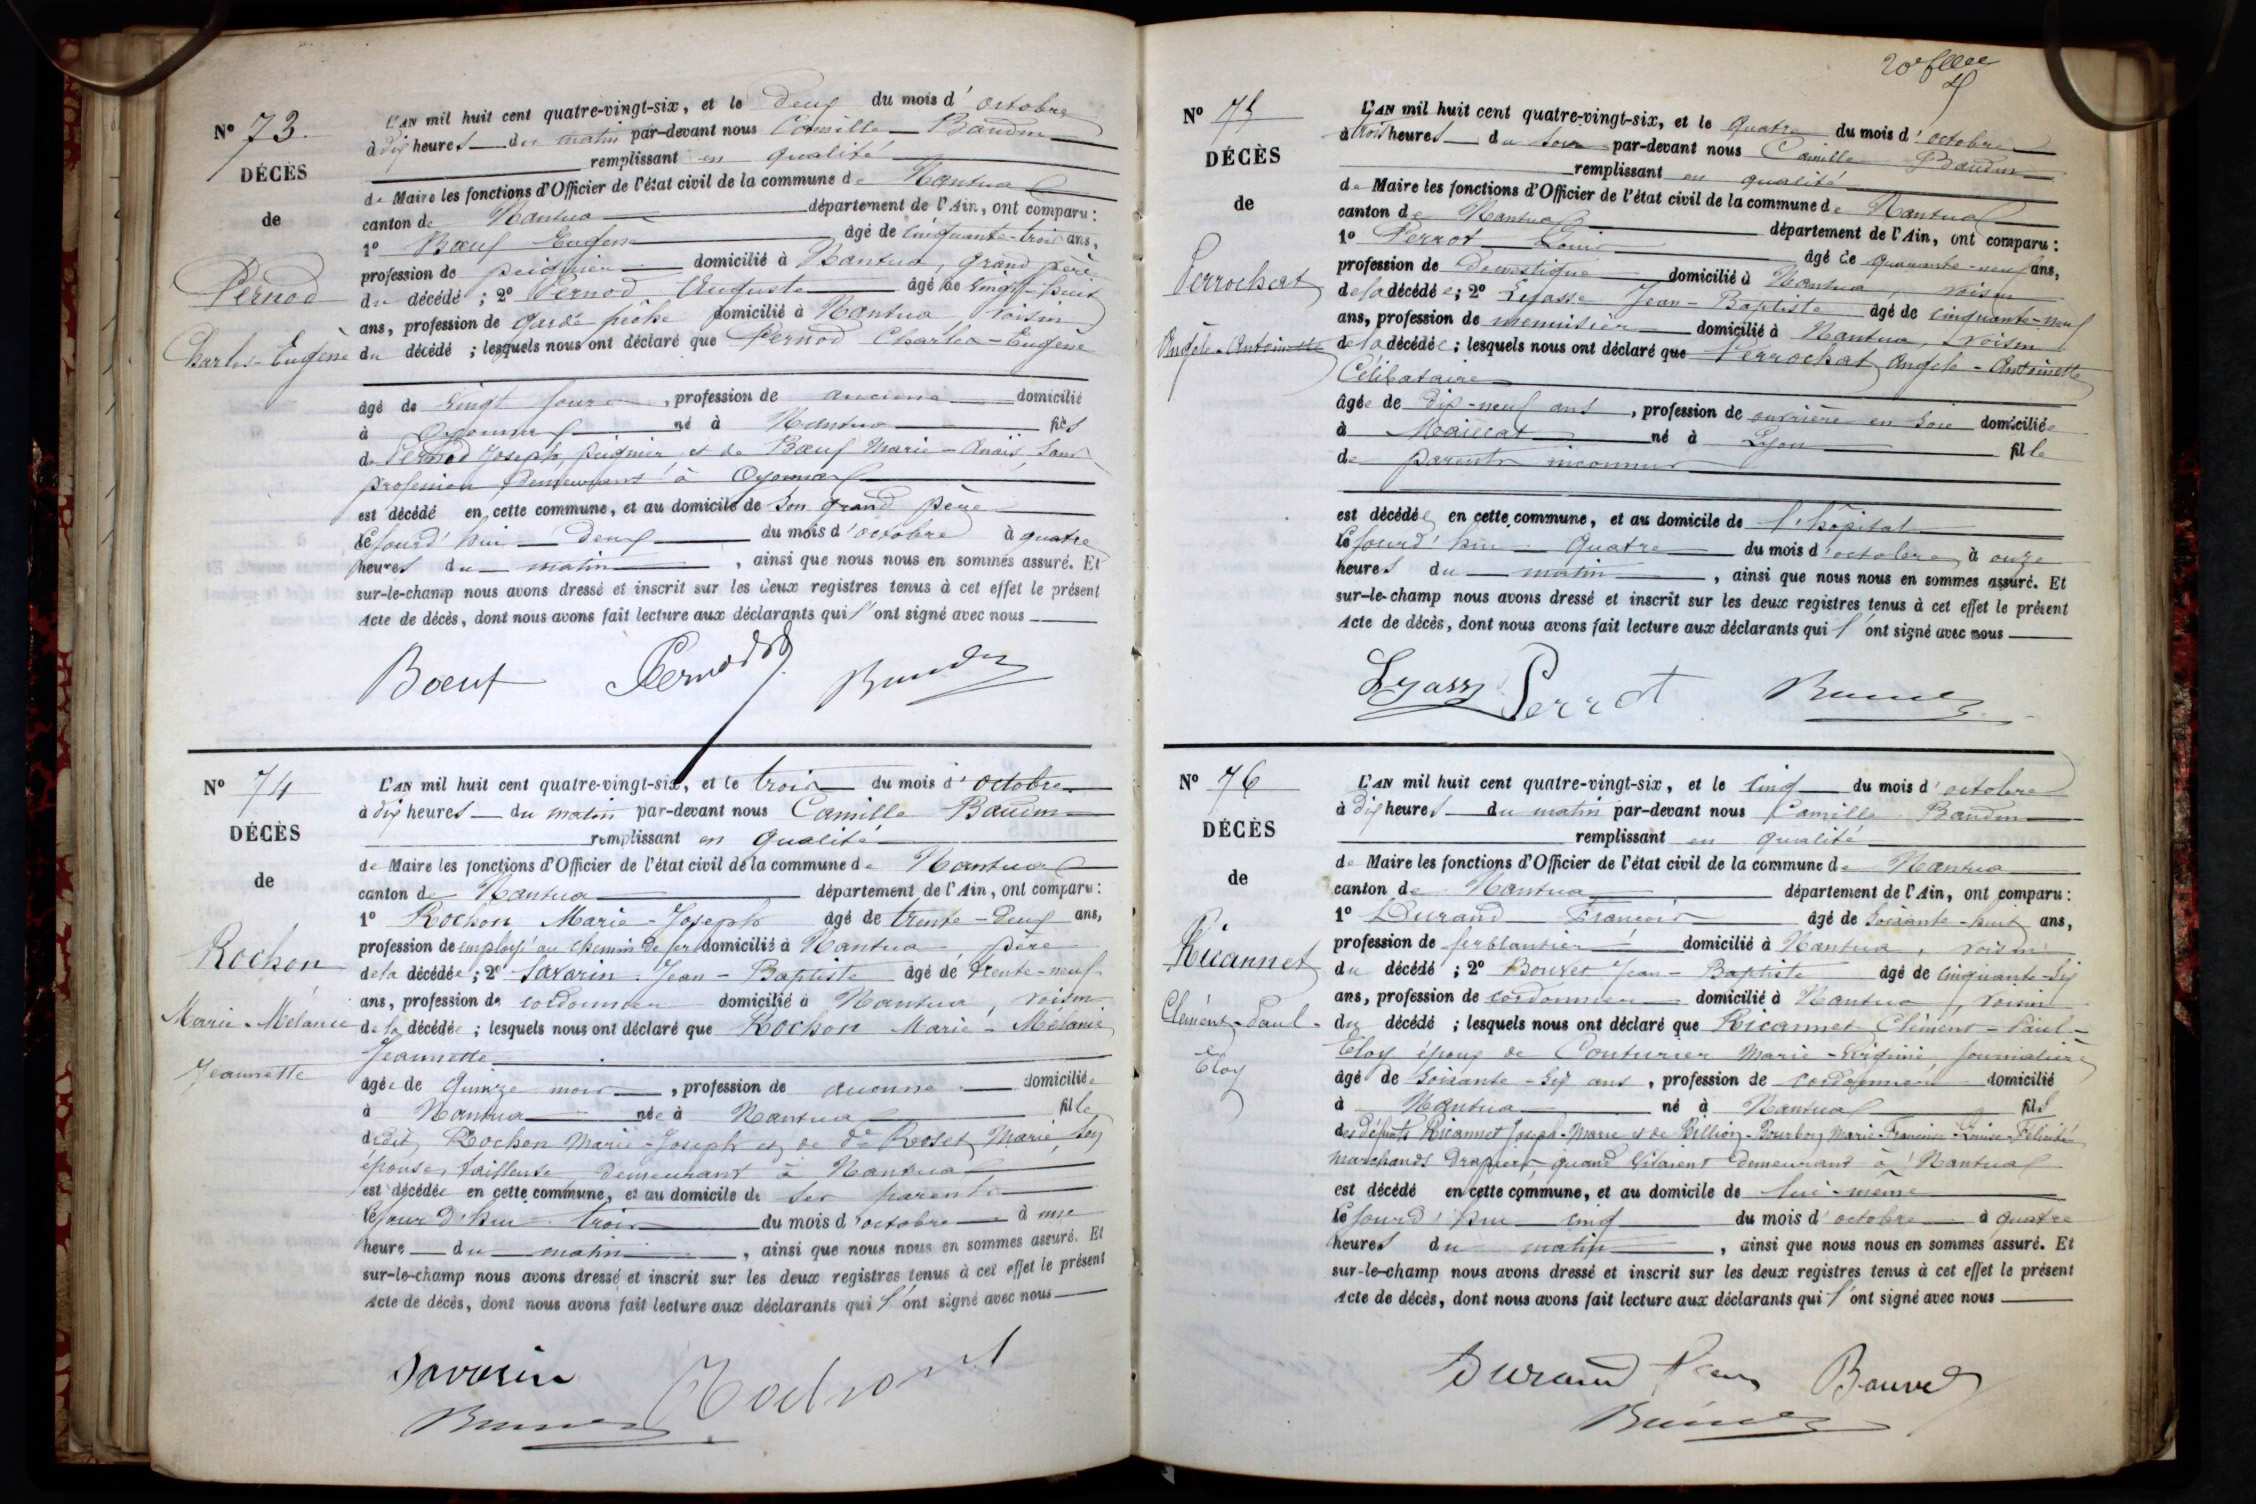 N° 73
DÉCÈS
de
Pernod
Charles-Eugène
L'AN mil huit cent quatre-vingt-six, et le deux du mois d'octobre
à dix heures du matin par-devant nous Camille Baudin
remplissant en qualité
de Maire les fonctions d'Officier de l'état civil de la commune de Nantua
canton de Nantua département de l'Ain, ont comparu :
1° Bœuf Eugène âgé de cinquante-trois ans,
profession de peignier domicilié à Nantua, grand père
du décédé ; 2° Pernod Auguste âgé de vingt-huit
ans, profession de garde pêche domicilié à Nantua voisin
du décédé ; lesquels nous ont déclaré que Pernod Charles-Eugène
âgé de vingt jours, profession de aucune domicilié
à Oyonnax né à Nantua fils
de Pernod Joseph, peignier et de Bœuf Marie-Anaïs sans
profession demeurant à Oyonnax
est décédé en cette commune, et au domicile de son grand père
le jourd'hui deux du mois d'octobre à quatre
heures du matin, ainsi que nous nous en sommes assuré. Et
sur-le-champ nous avons dressé et inscrit sur les deux registres tenus à cet effet le présent
Acte de décès, dont nous avons fait lecture aux déclarants qui l'ont signé avec nous
Boeuf Pernod
N° 74
DÉCÈS
de
Rochon
Marie-Mélanie
Jeannette
L'AN mil huit cent quatre-vingt-six, et le trois du mois d'octobre
à dix heures du matin par-devant nous Camille Baudin
remplissant en qualité
de Maire les fonctions d'Officier de l'état civil de la commune de Nantua
canton de Nantua département de l'Ain, ont comparu :
1° Rochon Marie-Joseph âgé de trente-deux ans,
profession de employé au chemin de fer domicilié à Nantua père
de la décédée ; 2° Savarin Jean-Baptiste âgé de trente-neuf
ans, profession de cordonnier domicilié à Nantua, voisin
de la décédée ; lesquels nous ont déclaré que Rochon Marie-Mélanie
Jeannette
âgée de quinze mois, profession de aucune domiciliée
à Nantua née à Nantua fille
dudit Rochon Marie-Joseph et de de Roset Marie, son
épouse, tailleuse demeurant à Nantua
est décédée en cette commune, et au domicile de ses parents
le jourd'hui trois du mois d'octobre à une
heure du matin, ainsi que nous nous en sommes assuré. Et
sur-le-champ nous avons dressé et inscrit sur les deux registres tenus à cet effet le présent
Acte de décès, dont nous avons fait lecture aux déclarants qui l'ont signé avec nous
Savarin Rochon
20e
N° 75
DÉCÈS
de
Perrochat
Angèle-Antoinette
L'AN mil huit cent quatre-vingt-six, et le quatre du mois d'octobre
à trois heures du soir par-devant nous Camille Baudin
remplissant en qualité
de Maire les fonctions d'Officier de l'état civil de la commune de Nantua
canton de Nantua département de l'Ain, ont comparu :
1° Perrot Louis âgé de quarante-neuf ans,
profession de domestique domicilié à Nantua, voisin
de la décédée ; 2° Lyasse Jean-Baptiste âgé de cinquante-neuf
ans, profession de menuisier domicilié à Nantua, voisin
de la décédée ; lesquels nous ont déclaré que Perrochat Angèle-Antoinette
Célibataire
âgée de dix-neuf ans, profession de ouvrière en soie domiciliée
à Maillat né à Lyon fille
de parents inconnus
est décédée en cette commune, et au domicile de l'hôpital
le jourd'hui quatre du mois d'octobre à onze
heures du matin, ainsi que nous nous en sommes assuré. Et
sur-le-champ nous avons dressé et inscrit sur les deux registres tenus à cet effet le présent
Acte de décès, dont nous avons fait lecture aux déclarants qui l'ont signé avec nous
Perrot
N° 76
DÉCÈS
de
Ricannet
Clément-Paul-
Eloy
L'AN mil huit cent quatre-vingt-six, et le cinq du mois d'octobre
à dix heures du matin par-devant nous Camille Baudin
remplissant en qualité
de Maire les fonctions d'Officier de l'état civil de la commune de Nantua
canton de Nantua département de l'Ain, ont comparu :
1° Durand François âgé de soixante-huit ans,
profession de ferblantier domicilié à Nantua, voisin
du décédé ; 2° Bouvet Jean-Baptiste âgé de cinquante-six
ans, profession de cordonnier domicilié à Nantua, voisin
du décédé ; lesquels nous ont déclaré que Ricannet Clément-Paul-
Eloy époux de Couturier Marie-Virginie, journalière
âgé de soixante-six ans, profession de cordonnier domicilié
à Nantua né à Nantua fils
des défunts Ricannet Joseph-Marie et de Billion-Bourbon Marie-Françoise-Louise-Félicitée
marchands drapiers quand vivaient demeurant à Nantua
est décédé en cette commune, et au domicile de lui-même
le jourd'hui cinq du mois d'octobre à quatre
heures du matin, ainsi que nous nous en sommes assuré. Et
sur-le-champ nous avons dressé et inscrit sur les deux registres tenus à cet effet le présent
Acte de décès, dont nous avons fait lecture aux déclarants qui l'ont signé avec nous
Durand Bouvet